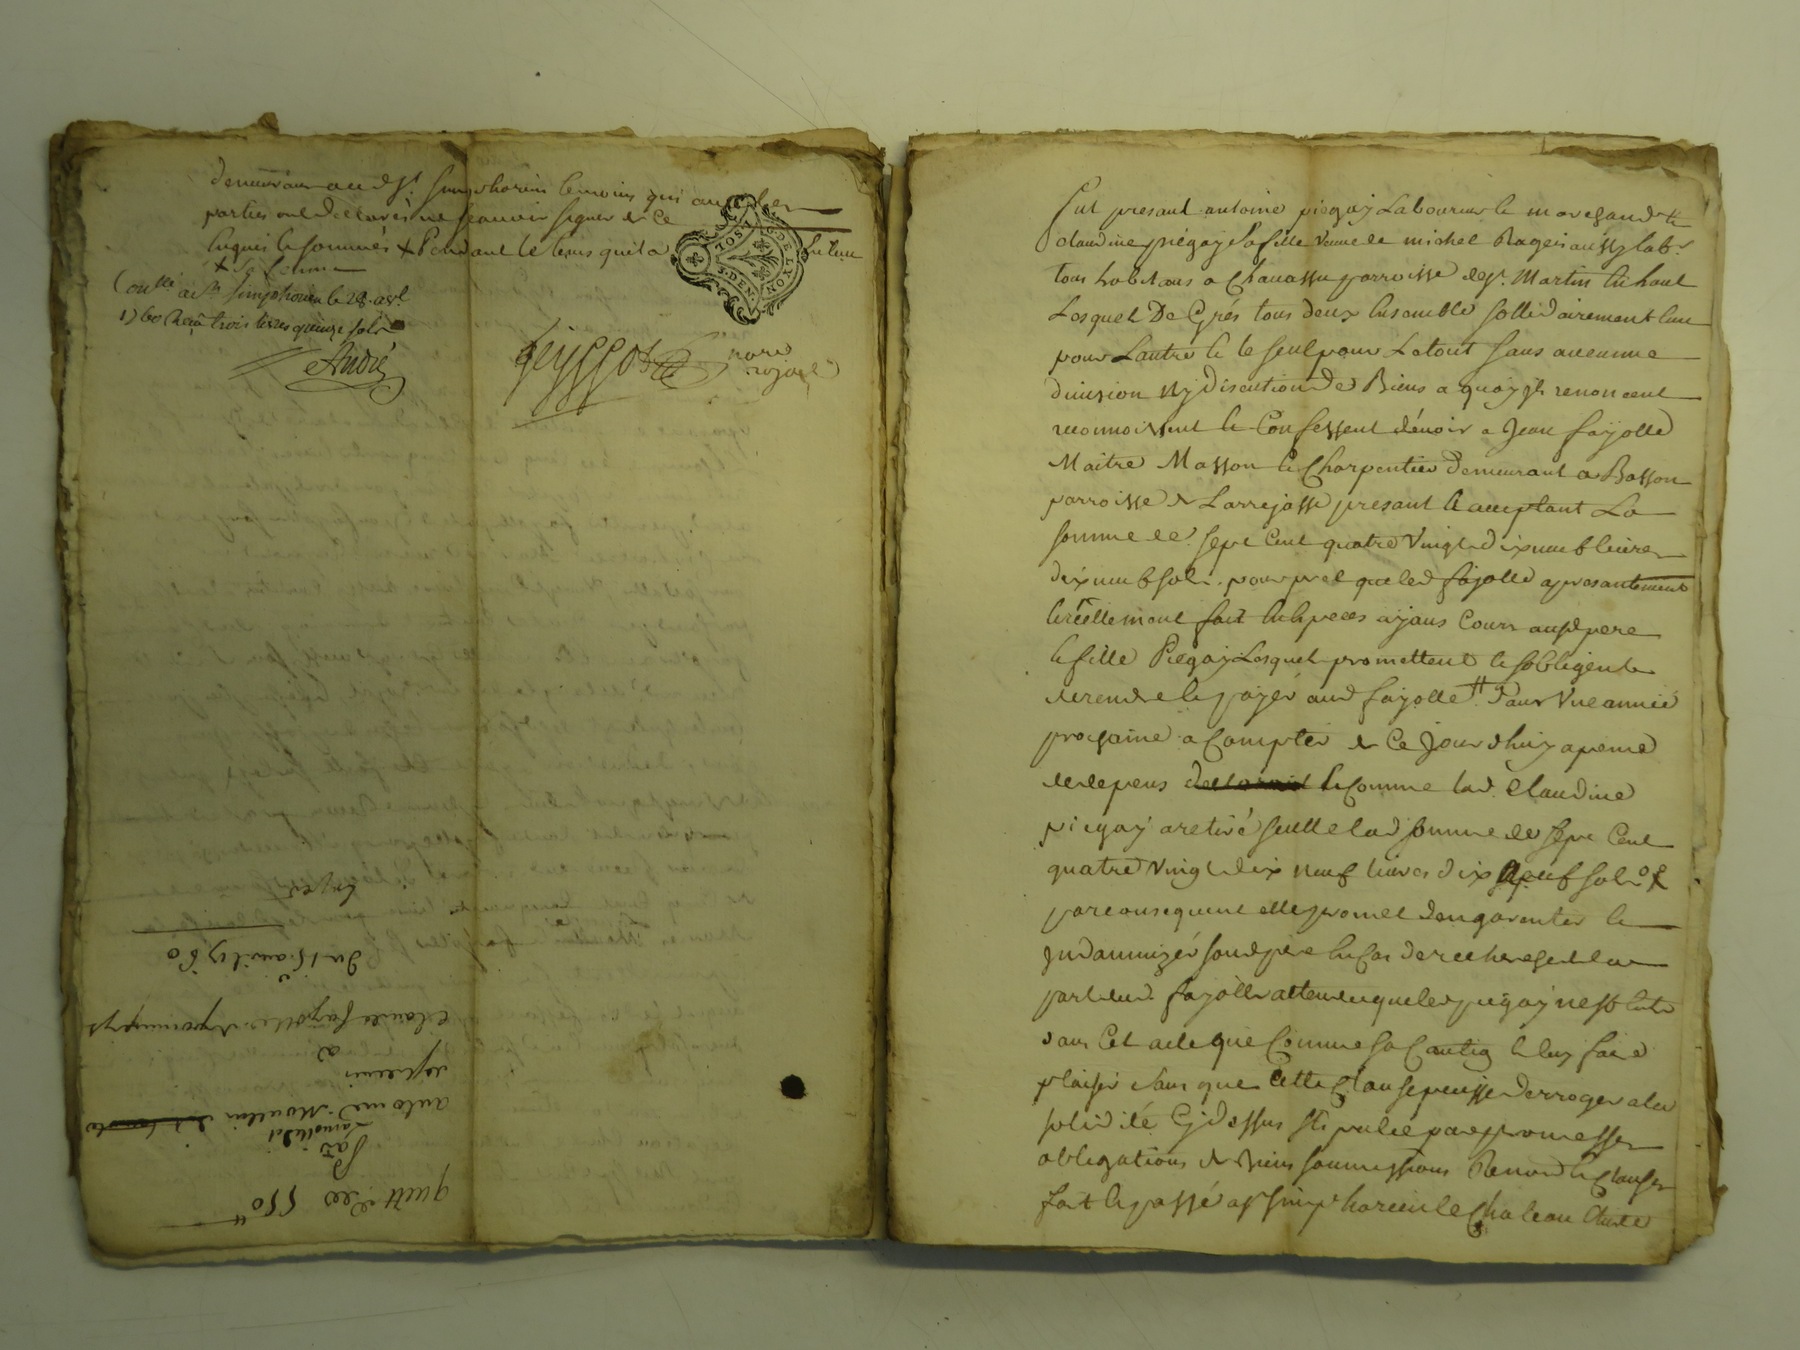 demeurans audt St. Simphorien temoins qui avec les
parties ont declarés ne scavoir signer de ce
enquis et sommés + Pendant le tems quil a
+ sa femme
Conllé a St Simphorien le 28 avl
1760 Reçu trois livres quinze sols
André
GENER. DE LYON
TOS. DEN.
Peyssot nore
royal
quitt. de 550 ll
Par
antoine Moulin
Lamolle et
sa femme
a
Claude fayolle de pomeys
Du 15 avril 1760
Expédié
Fut presant antoine piegay Laboureur et marchand et
Claudine piégay sa fille veuve de michel Rageis aussy labr
tous habitans a Chavassu parroisse de St. Martin En haut
Lesquels De Grés tous deux Ensemble sollidairement l'un
pour L'autre et le seul pour Le tout sans aucunne
division ny discution de Biens a quoy ils renoncent
reconnoissent et Confessent dévoir a Jean fayolle
Maitre Masson et Charpentier demeurant a Bosson
parroisse de Larrajasse presant et acceptant La
somme de sept Cent quatre vingt dix neuf livres
dix neuf sols pour pret que led fayolle a presantement
et réellement fait En Especes ayans Cours ausd pere
et fille Piegay Lesquels promettent et s'obligent
de rendre et payér aud fayolle Dans Une année
prochaine a Compter de Ce Jourdhuy a peine
de depens et Comme lad. Claudine
piegay a retiré seulle lad somme de sept Cent
quatre vingt dix neuf livres dix neuf sols
par consequent elle promet d'en garentir et
Indamnizér son d pere En Cas de recherche de la
part dud fayolle attendu que led piegay n'est Entré
dans Cet acte que Comme sa Caution et luy faire
plaisir sans que Cette Clause puisse derroger a la
solidité Cy dessus Stipulée par promesses
obligations de Biens soumissions Renonds et Clauses
fait et passé a St Simphorien le Chateau Etude